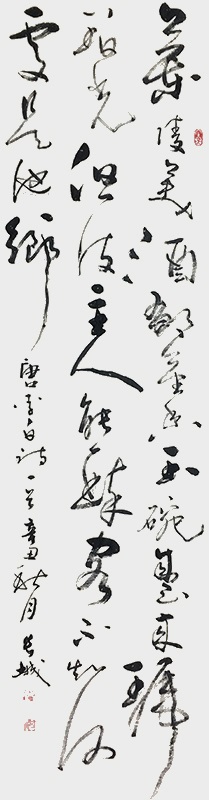 蘭陵美酒鬱金香玉碗盛來琥
珀光但使主人能醉客不知何
處是他鄉
唐李白詩一首辛丑秋月長城